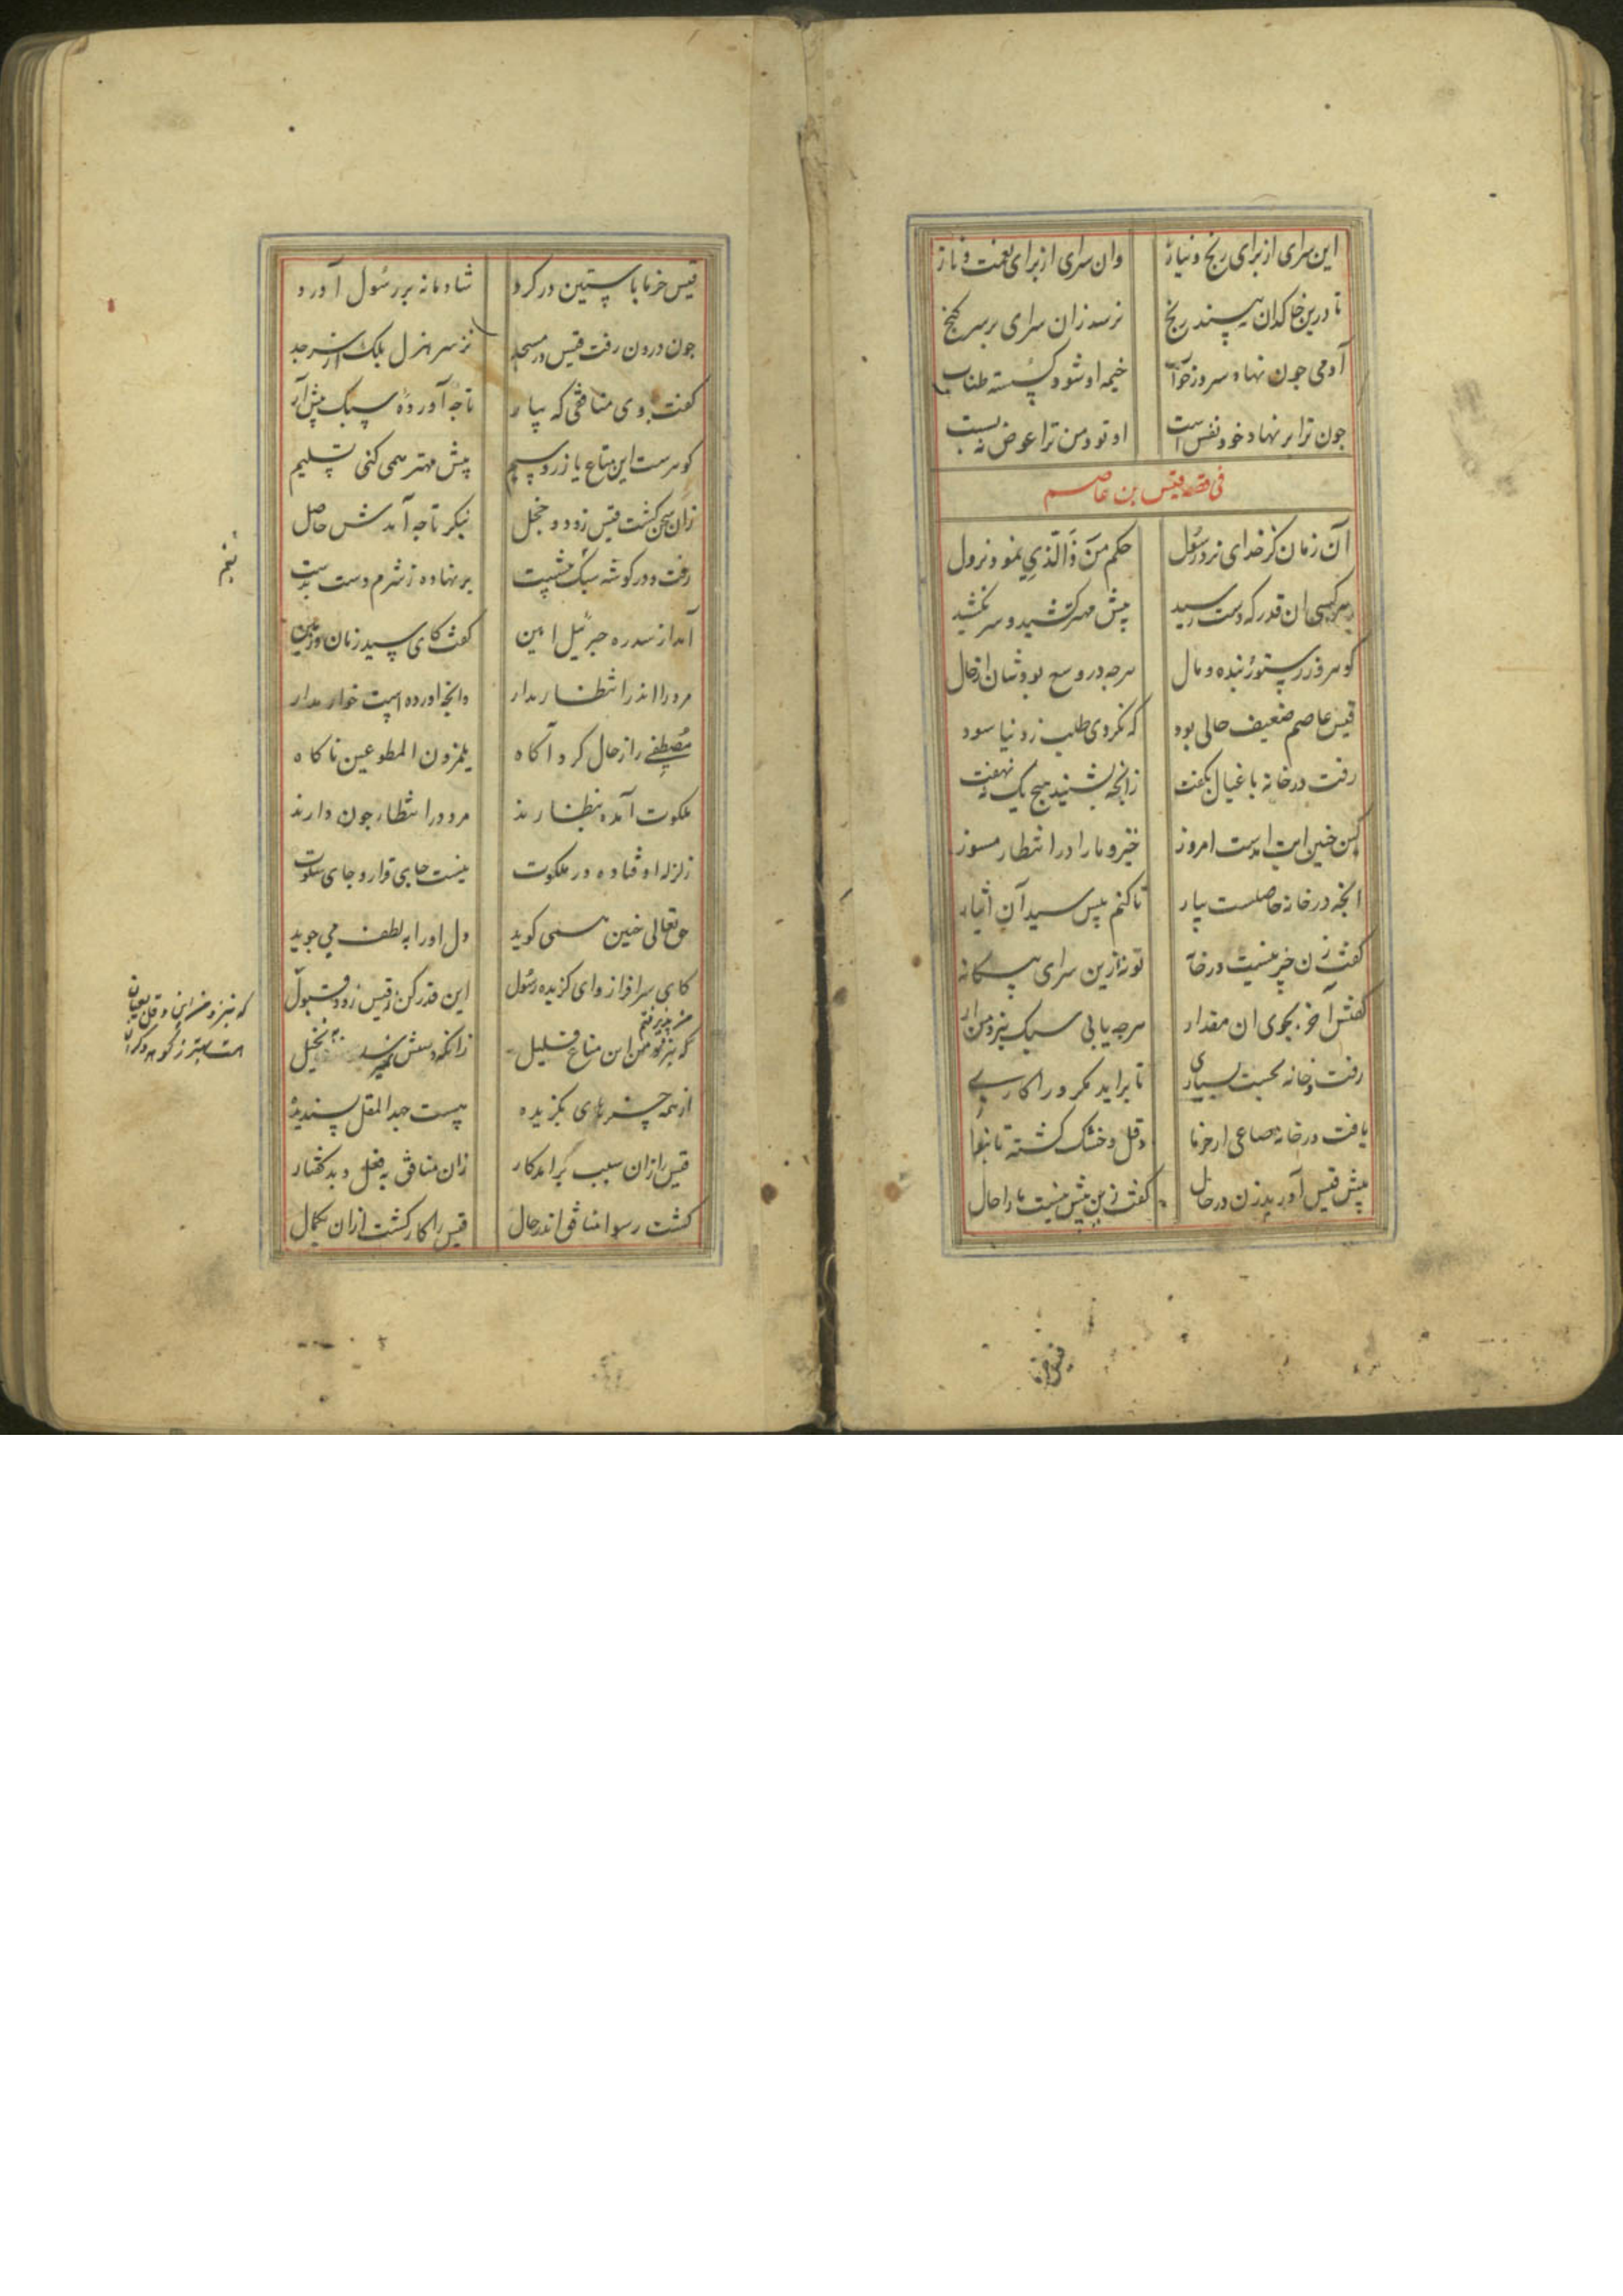 این سرای از برای رنج و نیاز وان سرای از برای نعمت و ناز
تا درین خاکدان نبیند رنج نرسد زان سرای بر سر گنج
آدمی جون نهاد سر در خواب خیمه او شود گسسته طناب
جون ترا بر نهاد خود نفس است
فی قصه قیس بن عاصم
آن زمان کز خدای نزد رسول حکم مَن ذَا الّذی نمود نزول
هر کسی ان قدر که دست رسید پیش مهتر کشید و سر نکشید
کوهر و زر ستور بنده و مال هرجه در وسع بودشان از حال
قیس عاصم ضعیف حالی بود که نکردی طلب ز دنیا سود
رفت در خانه با عیال بکفت زانجه بشنید هیج یک ننهفت
کین جنین ایت امدست امروز خیز و ما را در انتظار مسوز
انجه در خانه حاصلست بیار تا کنم پیش سید آن ایثار
کفت زن جیز نیست در خانه تو نه ازین سرای بیکانه
کفتش آخر بجوی ان مقدار هرجه یابی سبک بنزد من ار
رفت و خانه بجست بسیاری تا براید مکر ورا کاری
یافت در خانه صاعی از خرما دقل و خشک کشته تا بنوا
پیش قیس آورید زن در حال کفت زین بیش نیست ما را حال
قیس خرما باستین در کرد شادمانه بر رسول آورد
جون درون رفت قیس در مسجد نز سر هزل بلک از سر جد
کفت با وی منافقی که بیار تا جه آورده سبک پیش آر
کوهرست این متاع یا زر و سیم پیش مهتر همی کنی تسلیم
زان سخن کشت قیس زود خجل بنکر تا جه آمدش حاصل
رفت و در کوشه سبک بنشست بر نهاده ز شرم دست بدست
آمد از سدره جبرئیل امین کفت کای سید زمان و زمین
مرد را اندر انتظار مدار وانجه اورده است خوار مدار
مصطفی را ز حال کرد آکاه یلمزون المطوعین ناکاه
ملکوت آمده بنظارند مرد در انتظار جون دارند
زلزله اوفتاده در ملکوت نیست جای قرار و جای سکوت
حق تعالی جنین همی کوید دل او را به لطف می جوید
کای سرافراز و ای کزیده رسول این قدر کن ز قیس زود قبول
که بنزد من این متاع قلیل
از همه جیزهای بکزیده هست جهد المقل پسندیده
قیس را زان سبب برامد کار زان منافق به فعل و بد کفتار
کشت رسوا منافق اندر حال قیس را کار کشت ازان بکمال
که بنزد من این دقل بعیان